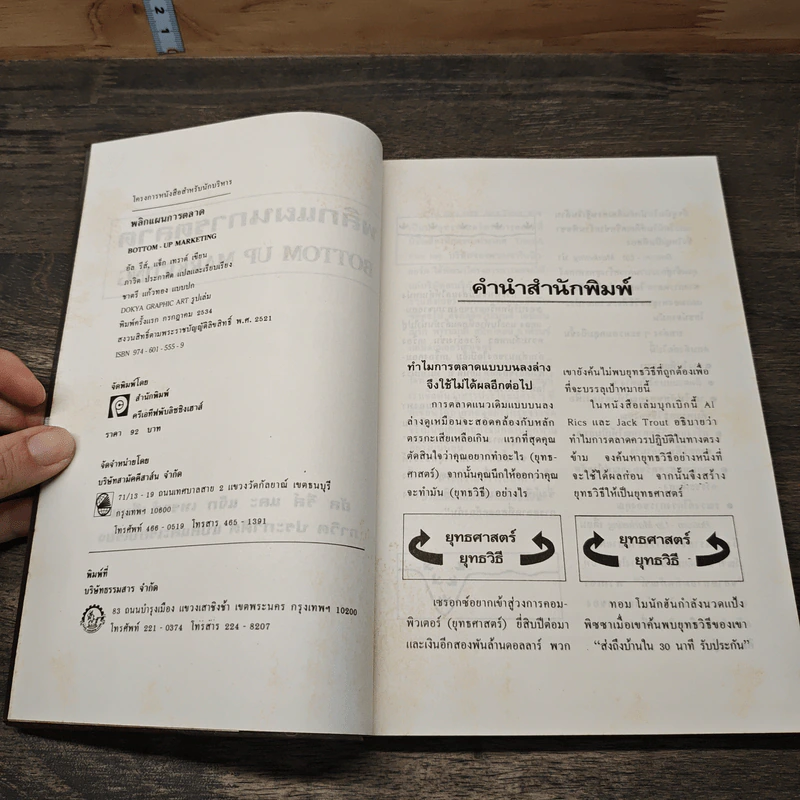 2
1
โครงการหนังสือสำหรับนักบริหาร
พลิกแผนการตลาด
BOTTOM - UP MARKETING
อัล รีส์, แจ็ก เทราต์ เขียน
ภาวิต ประกาศิต แปลและเรียบเรียง
ชาตรี แก้วทอง แบบปก
DOKYA GRAPHIC ART รูปเล่ม
พิมพ์ครั้งแรก กรกฎาคม 2534
สงวนสิทธิ์ตามพระราชบัญญัติลิขสิทธิ์ พ.ศ. 2521
ISBN 974 - 601 - 555 - 9
จัดพิมพ์โดย
สำนักพิมพ์
ครีเอทีฟพับลิชชิ่งเฮาส์
ราคา 92 บาท
จัดจำหน่ายโดย
บริษัทสามัคคีสาส์น จำกัด
71/13 - 19 ถนนเทศบาลสาย 2 แขวงวัดกัลยาณ์ เขตธนบุรี
กรุงเทพฯ 10600
โทรศัพท์ 466 - 0519 โทรสาร 465 - 1391
พิมพ์ที่
บริษัทธรรมสาร จำกัด
83 ถนนบำรุงเมือง แขวงเสาชิงช้า เขตพระนคร กรุงเทพฯ 10200
โทรศัพท์ 221 - 0374 โทรสาร 224 - 8207
คำนำสำนักพิมพ์
ทำไมการตลาดแบบบนลงล่าง
จึงใช้ไม่ได้ผลอีกต่อไป
การตลาดแนวเดิมแบบบนลง
ล่างดูเหมือนจะสอดคล้องกับหลัก
ตรรกะเสียเหลือเกิน แรกที่สุดคุณ
ตัดสินใจว่าคุณอยากทำอะไร (ยุทธ-
ศาสตร์) จากนั้นคุณนึกให้ออกว่าคุณ
จะทำมัน (ยุทธวิธี) อย่างไร
ยุทธศาสตร์
ยุทธวิธี
เซรอกซ์อยากเข้าสู่วงการคอม-
พิวเตอร์ (ยุทธศาสตร์) ยี่สิบปีต่อมา
และเงินอีกสองพันล้านดอลลาร์ พวก
เขายังค้นไม่พบยุทธวิธีที่ถูกต้องเพื่อ
ที่จะบรรลุเป้าหมายนี้
ในหนังสือเล่มบุกเบิกนี้ Al
Rics และ Jack Trout อธิบายว่า
ทำไมการตลาดควรปฏิบัติในทางตรง
ข้าม จงค้นหายุทธวิธีอย่างหนึ่งที่
จะใช้ได้ผลก่อน จากนั้นจึงสร้าง
ยุทธวิธีให้เป็นยุทธศาสตร์
ยุทธศาสตร์
ยุทธวิธี
ทอม โมนักฮันกำลังนวดแป้ง
พิซซาเมื่อเขาค้นพบยุทธวิธีของเขา
“ส่งถึงบ้านใน 30 นาที รับประกัน”